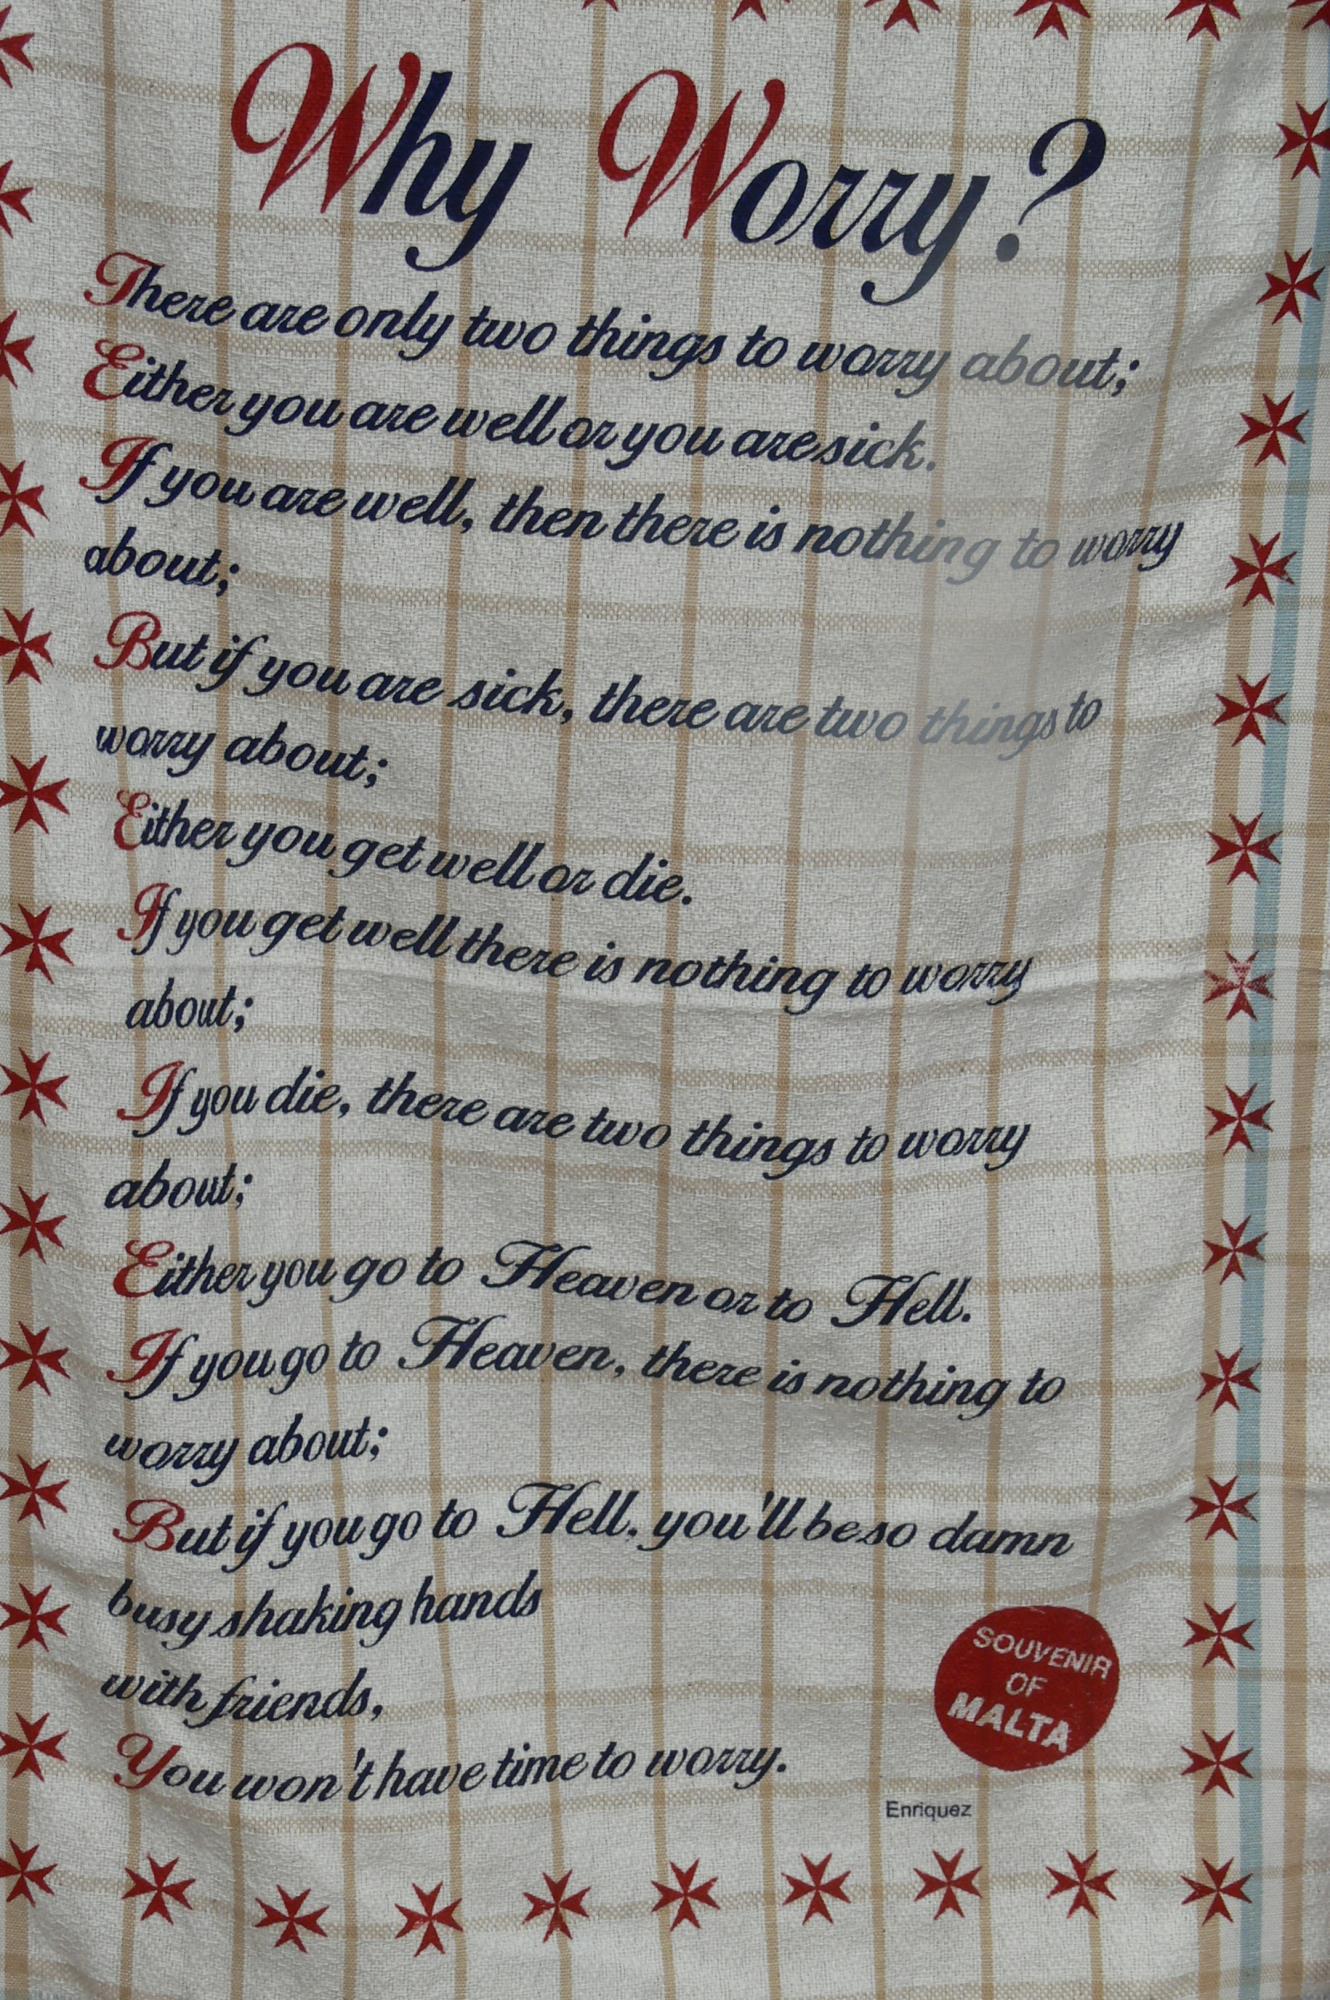 Why Worry?
There are only two things to worry about;
Either you are well or you are sick.
If you are well, then there is nothing to worry
about;
But if you are sick, there are two things to
worry about;
Either you get well or die.
If you get well there is nothing to worry
about;
If you die, there are two things to worry
about;
Either you go to Heaven or to Hell.
If you go to Heaven, there is nothing to
worry about;
But if you go to Hell. you'll be so damn
busy shaking hands
with friends,
You won't have time to worry.
SOUVENIR
OF
MALTA
Enriquez